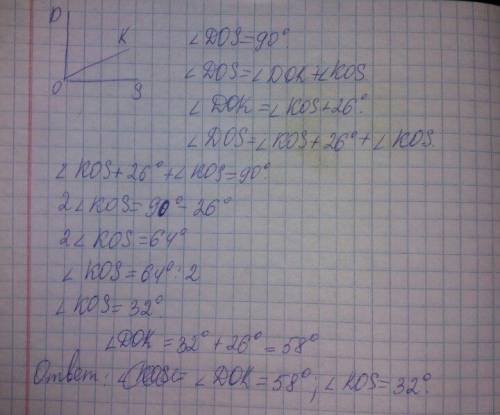 D
K
O
S
∠DOS=90°
∠DOS=∠DOK+∠KOS
∠DOK=∠KOS+26°.
∠DOS=∠KOS+26°+∠KOS.
∠KOS+26°+∠KOS=90°
2∠KOS=90°-26°
2∠KOS=64°
∠KOS=64°:2
∠KOS=32°.
∠DOK=32°+26°=58°
Ответ: ∠DOK=58°, ∠KOS=32°.